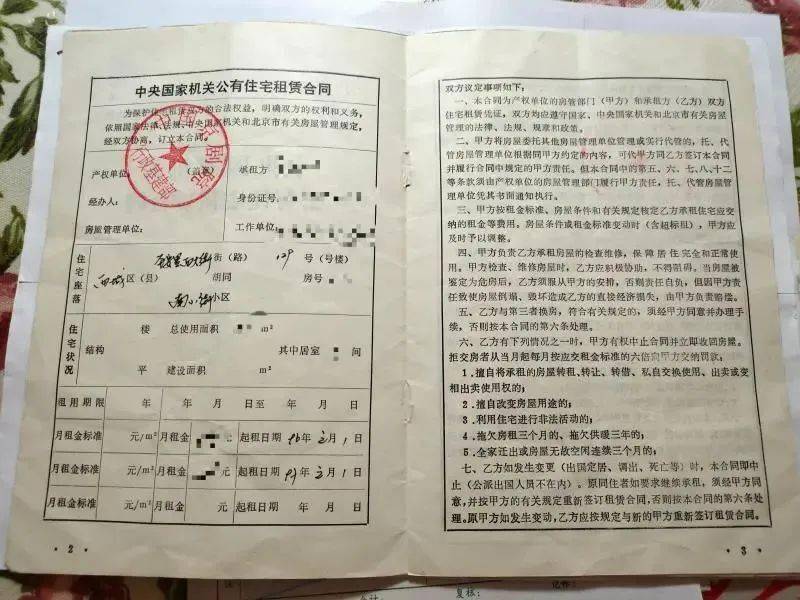 中央国家机关公有住宅租赁合同
为保护住宅租赁双方的合法权益,明确双方的权利和义务,
依照国家法律、法规、中央国家机关和北京市有关房屋管理规定,
经双方协商,订立本合同。
产权单位: (盖章) 承租方
经办人: 身份证号:
房屋管理单位: 工作单位:
住宅座落
西城区(县) 街(路) 129 号(号楼)
胡同 房号
南小街小区
住宅状况
楼 总使用面积 m²
结构 其中居室 间
平 建设面积 m²
租用期限 年 年 月 日至 年 月 日
月租金标准 元/m² 月租金 元 起租日期 年 月 1 日
月租金标准 元/m² 月租金 元 起租日期 年 月 1 日
月租金标准 元/m² 月租金 元 起租日期 年 月 日
·2·
双方议定事项如下:
一、本合同为产权单位的房管部门(甲方)和承租方(乙方)双方
住宅租赁凭证。双方均应遵守国家、中央国家机关和北京市有关房屋
管理的法律、法规、规章和政策。
二、甲方将房屋委托其他房屋管理单位管理或实行代管的,托、代
管房屋管理单位根据同甲方约定的内容,可代甲方同乙方签订本合同
并履行合同中规定的甲方责任。但本合同中的第五、六、七、八、十二
等条款须由产权单位的房屋管理部门履行甲方责任,托、代管房屋管
理单位凭其书面通知执行。
三、甲方按租金标准、房屋条件和有关规定核定乙方承租住宅应交
纳的租金等费用。房屋条件或租金标准变动时(含超标租),甲方应
及时予以调整。
四、甲方负责乙方承租房屋的检查维修,保障居住完全和正常使
用。甲方检查、维修房屋时,乙方应积极协助,不得阻碍。当房屋被
鉴定为危房后,乙方须服从甲方的安排,否则责任自负,但因甲方责
任致使房屋倒塌、毁坏造成乙方的直接经济损失,由甲方负责赔偿。
五、乙方与第三者换房,符合有关规定的,须经甲方同意并办理手
续,否则按本合同的第六条处理。
六、乙方有下列情况之一时,甲方有权中止合同并立即收回房屋。
拒交房者从当月起每月按应交租金标准的六倍向甲方交纳罚款:
1.擅自将承租的房屋转租、转让、转借、私自交换使用、出卖或变
相出卖使用权的;
2.擅自改变房屋用途的;
3.利用住宅进行非法活动的;
4.拖欠房租三个月的、拖欠供暖三年的;
5.全家迁出或房屋无故空闲连续三个月的;
七、乙方如发生变更(出国定居、调出、死亡等)时,本合同即中
止(公派出国人员不在内)。原同住者如要求继续承租,须经甲方同
意,并按甲方的有关规定重新签订租赁合同,否则按本合同的第六条处
理。原甲方如发生变动,乙方应按规定与新的甲方重新签订租赁合同。
·3·
复核: